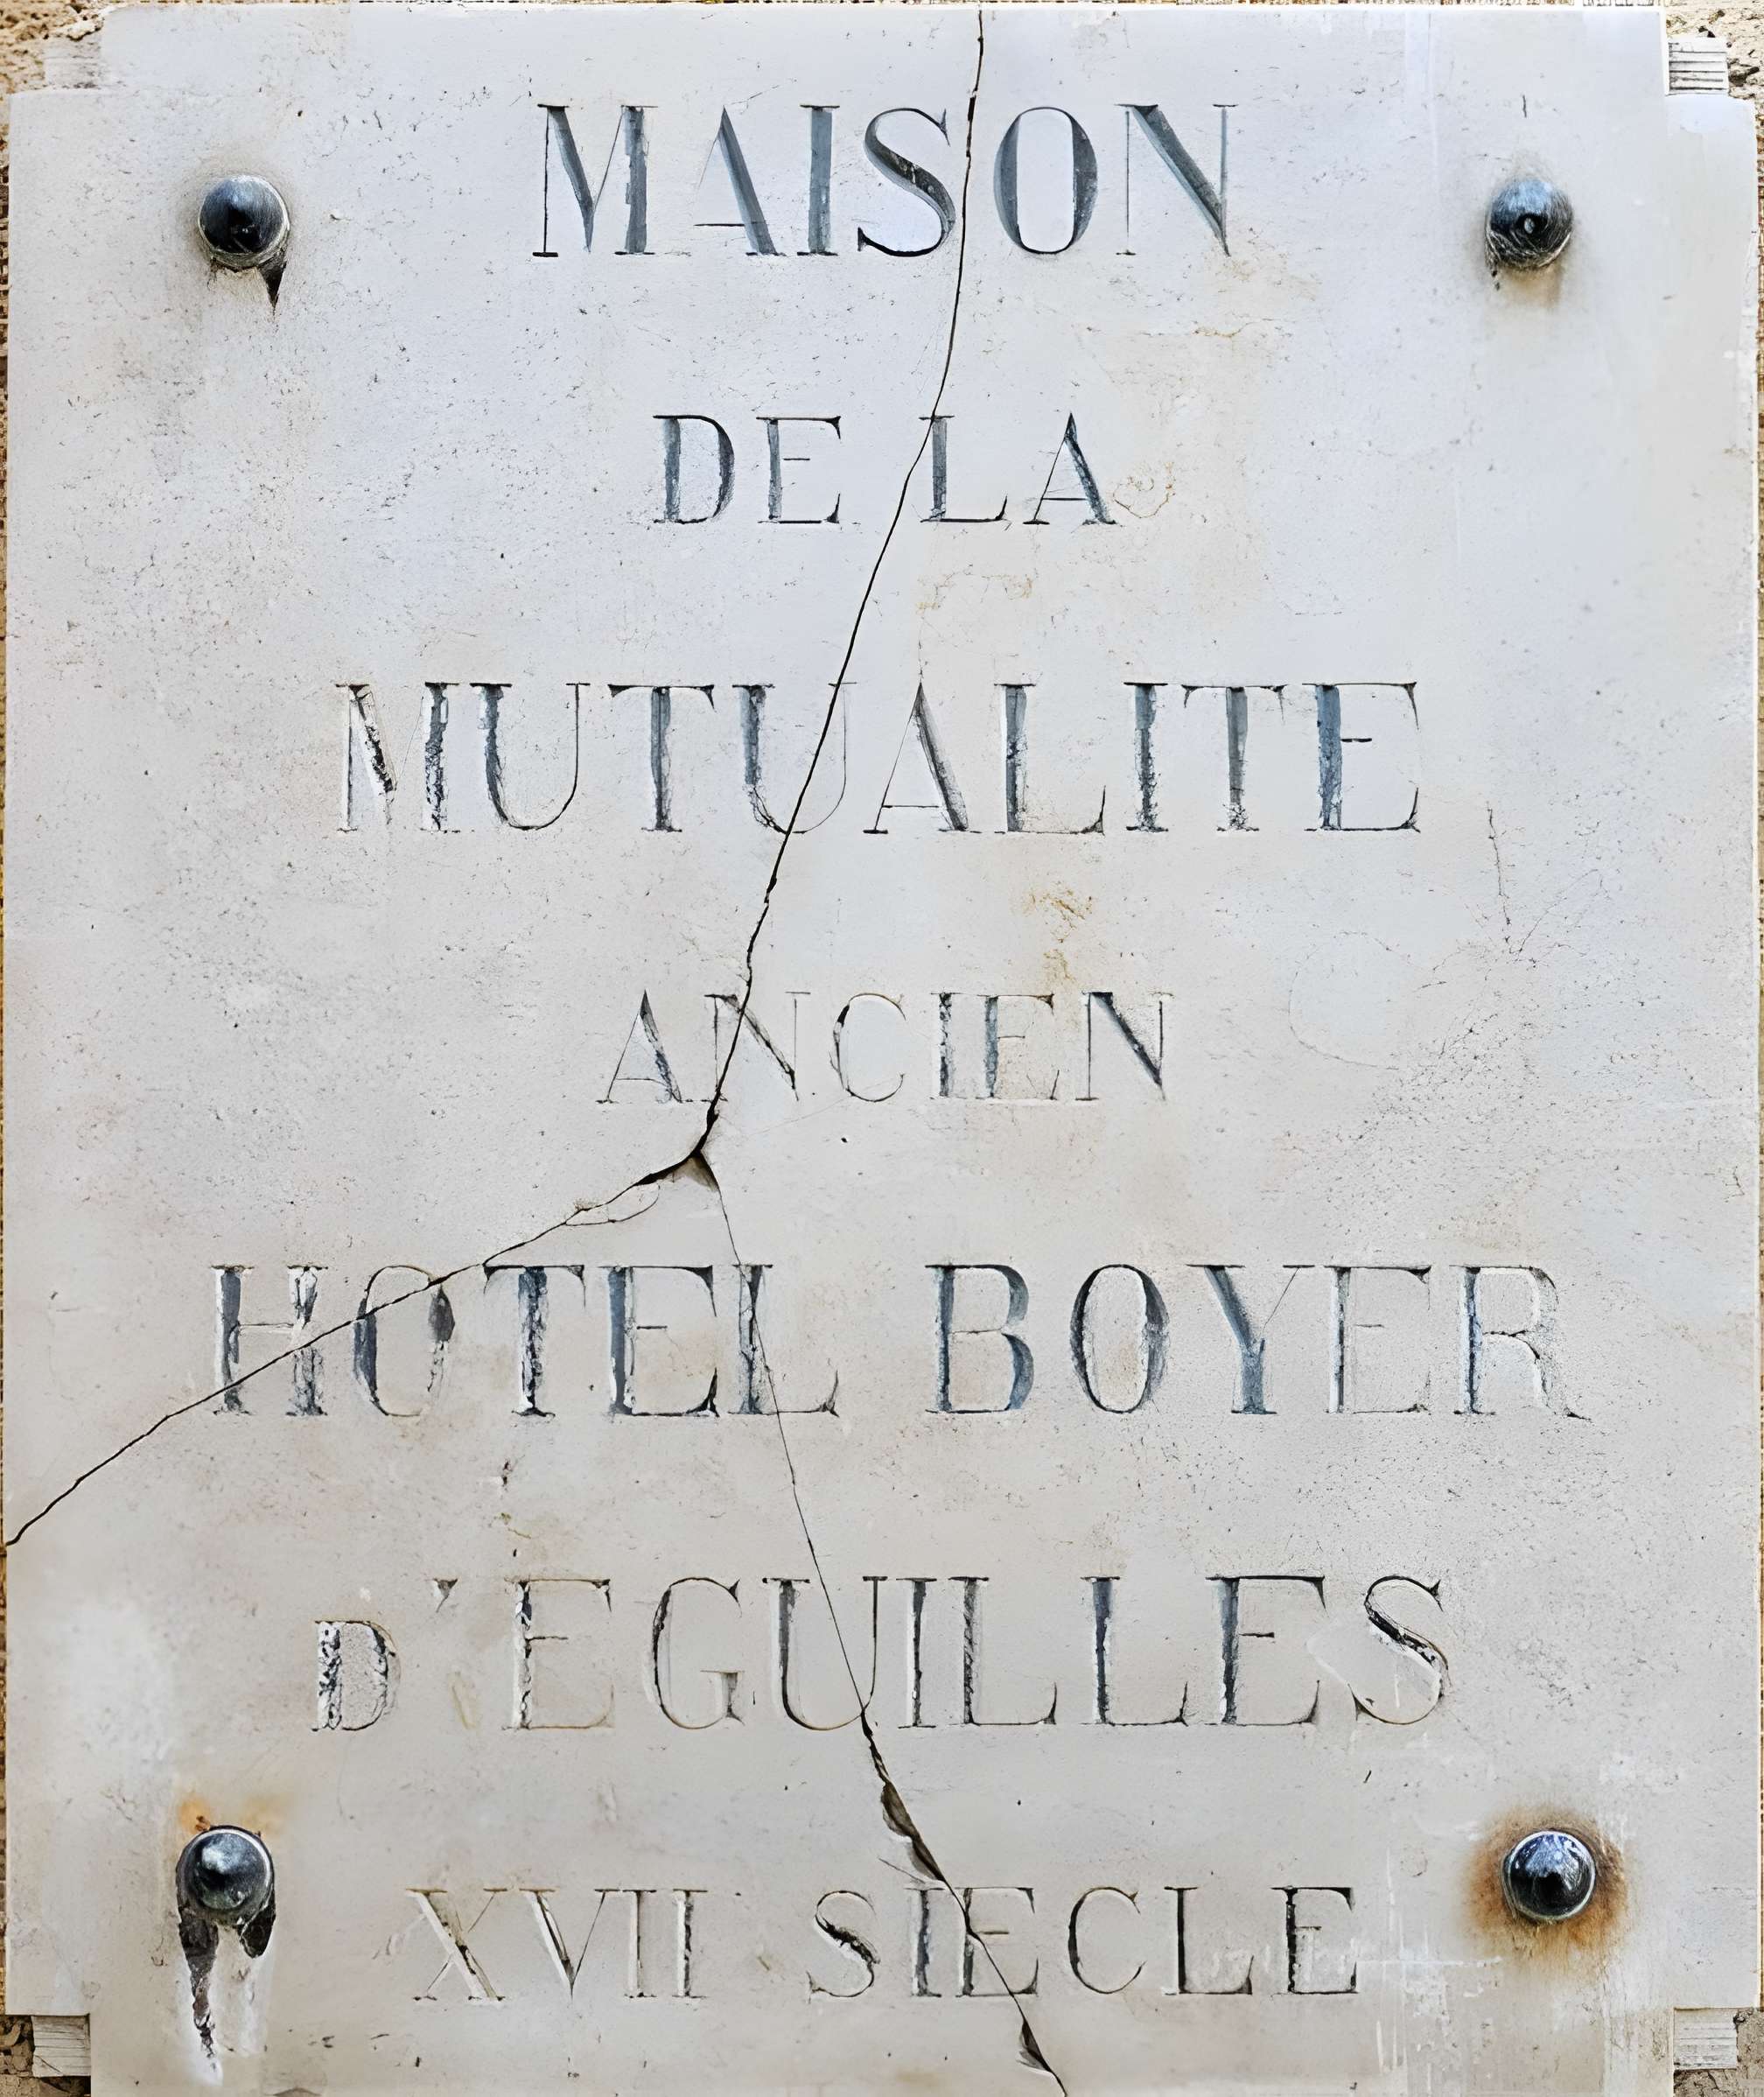 MAISON
DE LA
MUTUALITE
ANCIEN
HOTEL BOYER
D'EGUILLES
XVII SIECLE